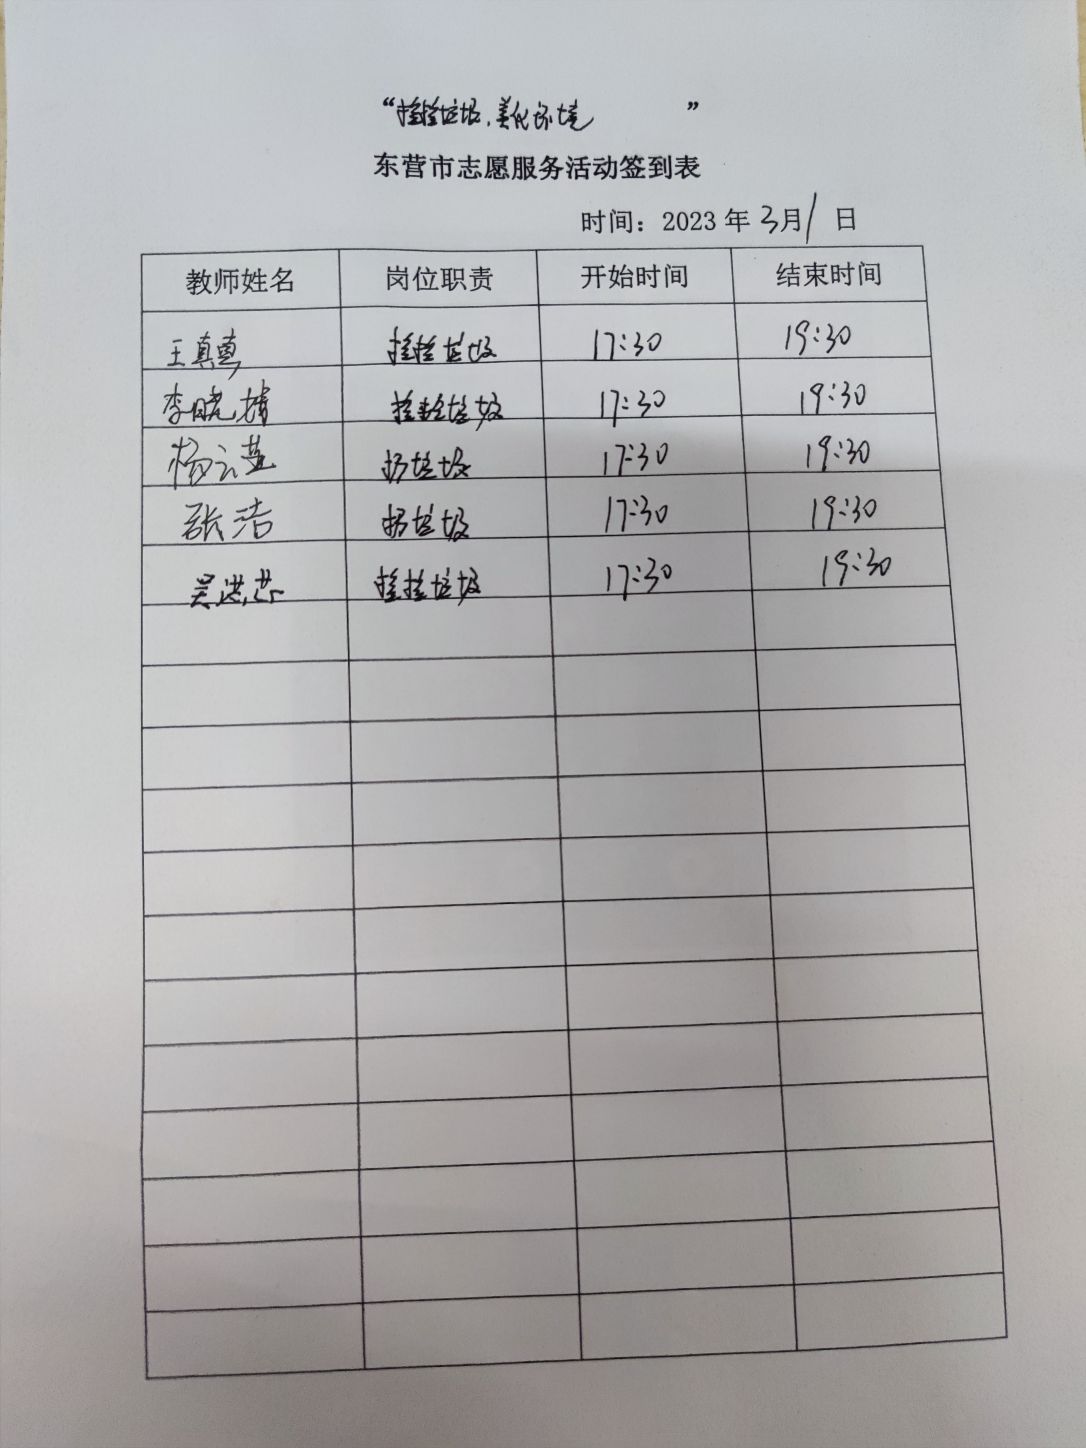 “捡捡垃圾,美化环境”
东营市志愿服务活动签到表
时间：2023 年 3月1日
教师姓名 岗位职责 开始时间 结束时间
王真真 捡捡垃圾 17:30 19:30
李晓婧 捡捡垃圾 17:30 19:30
杨云燕 扔垃圾 17:30 19:30
张洁 扔垃圾 17:30 19:30
吴洪芬 捡捡垃圾 17:30 19:30